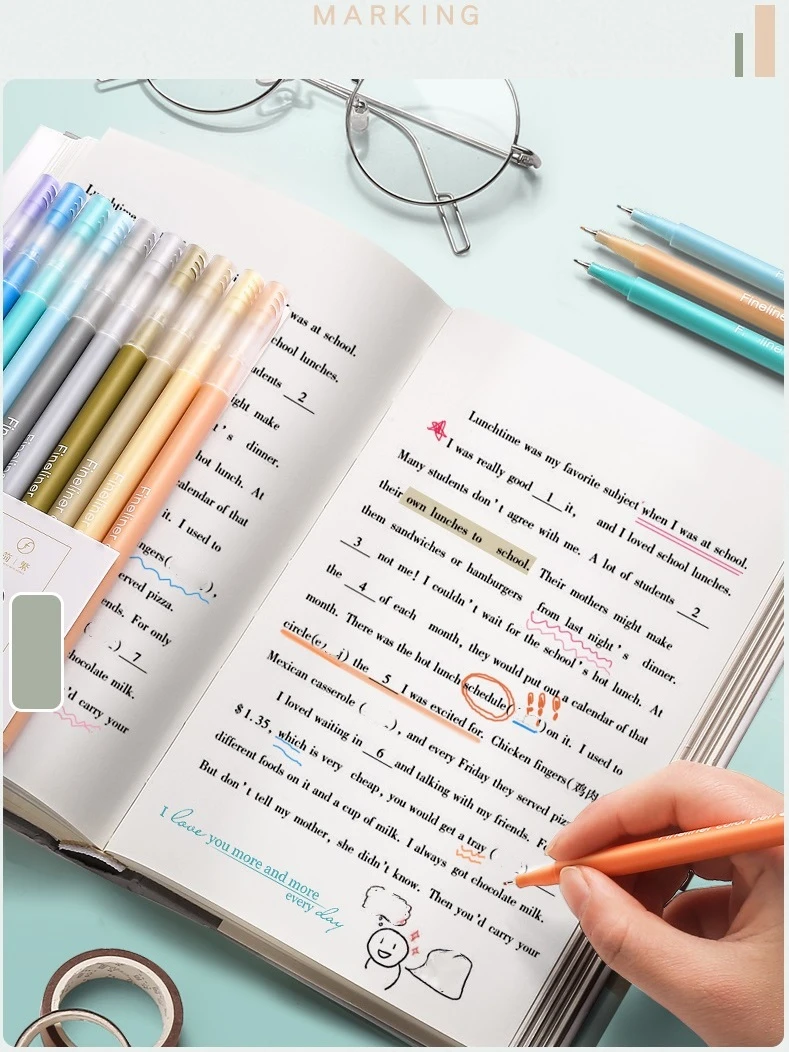 MARKING
Lunchtime
was at school.
school lunches.
students 2
might make
's dinner.
hot lunch. At
calendar of that
it. I used to
ngers( ),
erved pizza.
ends. For only
( ) 7
hocolate milk.
'd carry your
Fineliner
Fineliner
Fineliner
Fineliner
Fineliner
简|繁
Fineline
Fineline
Lunchtime was my favorite subject when I was at school.
I was really good 1 it, and I loved school lunches.
Many students don't agree with me. A lot of students 2
their own lunches to school. Their mothers might make
them sandwiches or hamburgers from last night's dinner.
3 not me! I couldn't wait for the school's hot lunch. At
the 4 of each month, they would put out a calendar of that
month. There was the hot lunch schedule( ) on it. I used to
circle( ) the 5 I was excited for. Chicken fingers(鸡肉
Mexican casserole ( ), and every Friday they served piz
I loved waiting in 6 and talking with my friends. F
$1.35, which is very cheap, you would get a tray (
different foods on it and a cup of milk. I always got chocolate milk.
But don't tell my mother, she didn't know. Then you'd carry your
I love you more and more
every day